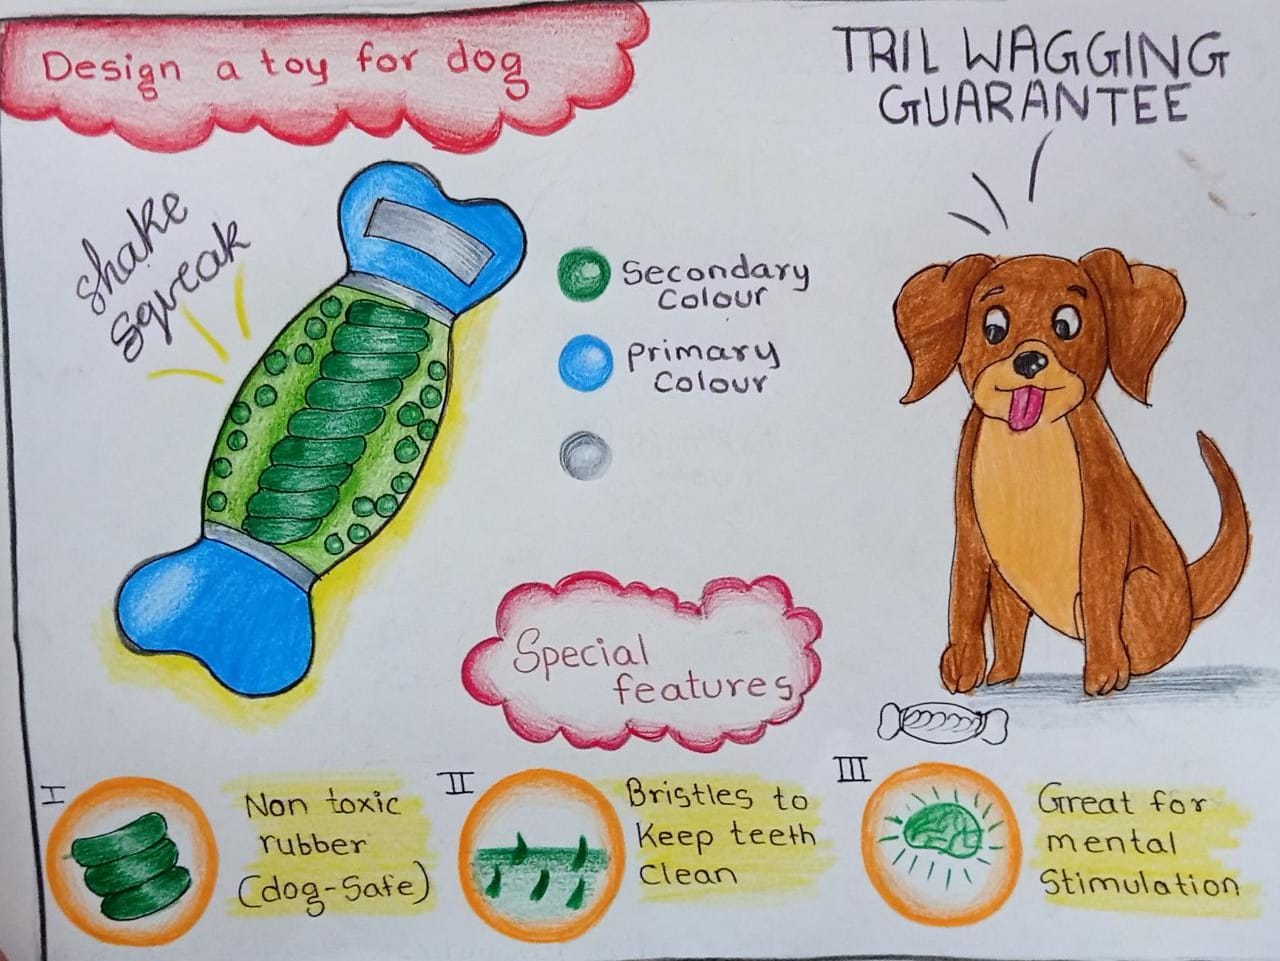 Design a toy for dog
TAIL WAGGING
GUARANTEE
Shake
squeak
Secondary
Colour
Primary
Colour
Special
features
I
Non toxic
rubber
(dog-Safe)
II
Bristles to
Keep teeth
Clean
III
Great for
mental
Stimulation